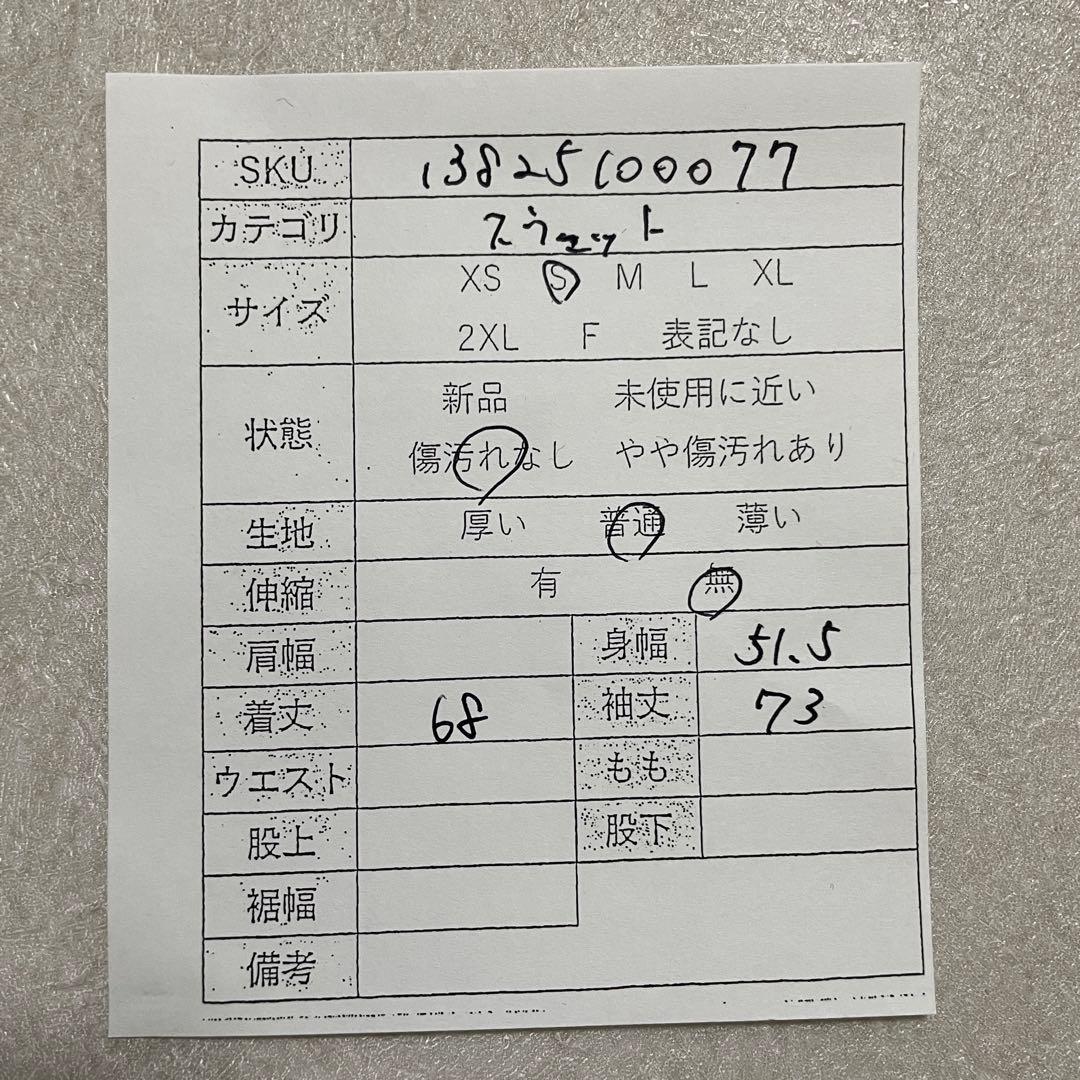 SKU 13825100077
カテゴリ スウェット
サイズ XS S M L XL
2XL F 表記なし
状態 新品 未使用に近い
傷汚れなし やや傷汚れあり
生地 厚い 普通 薄い
伸縮 有 無
肩幅 身幅 51.5
着丈 68 袖丈 73
ウエスト もも
股上 股下
裾幅
備考